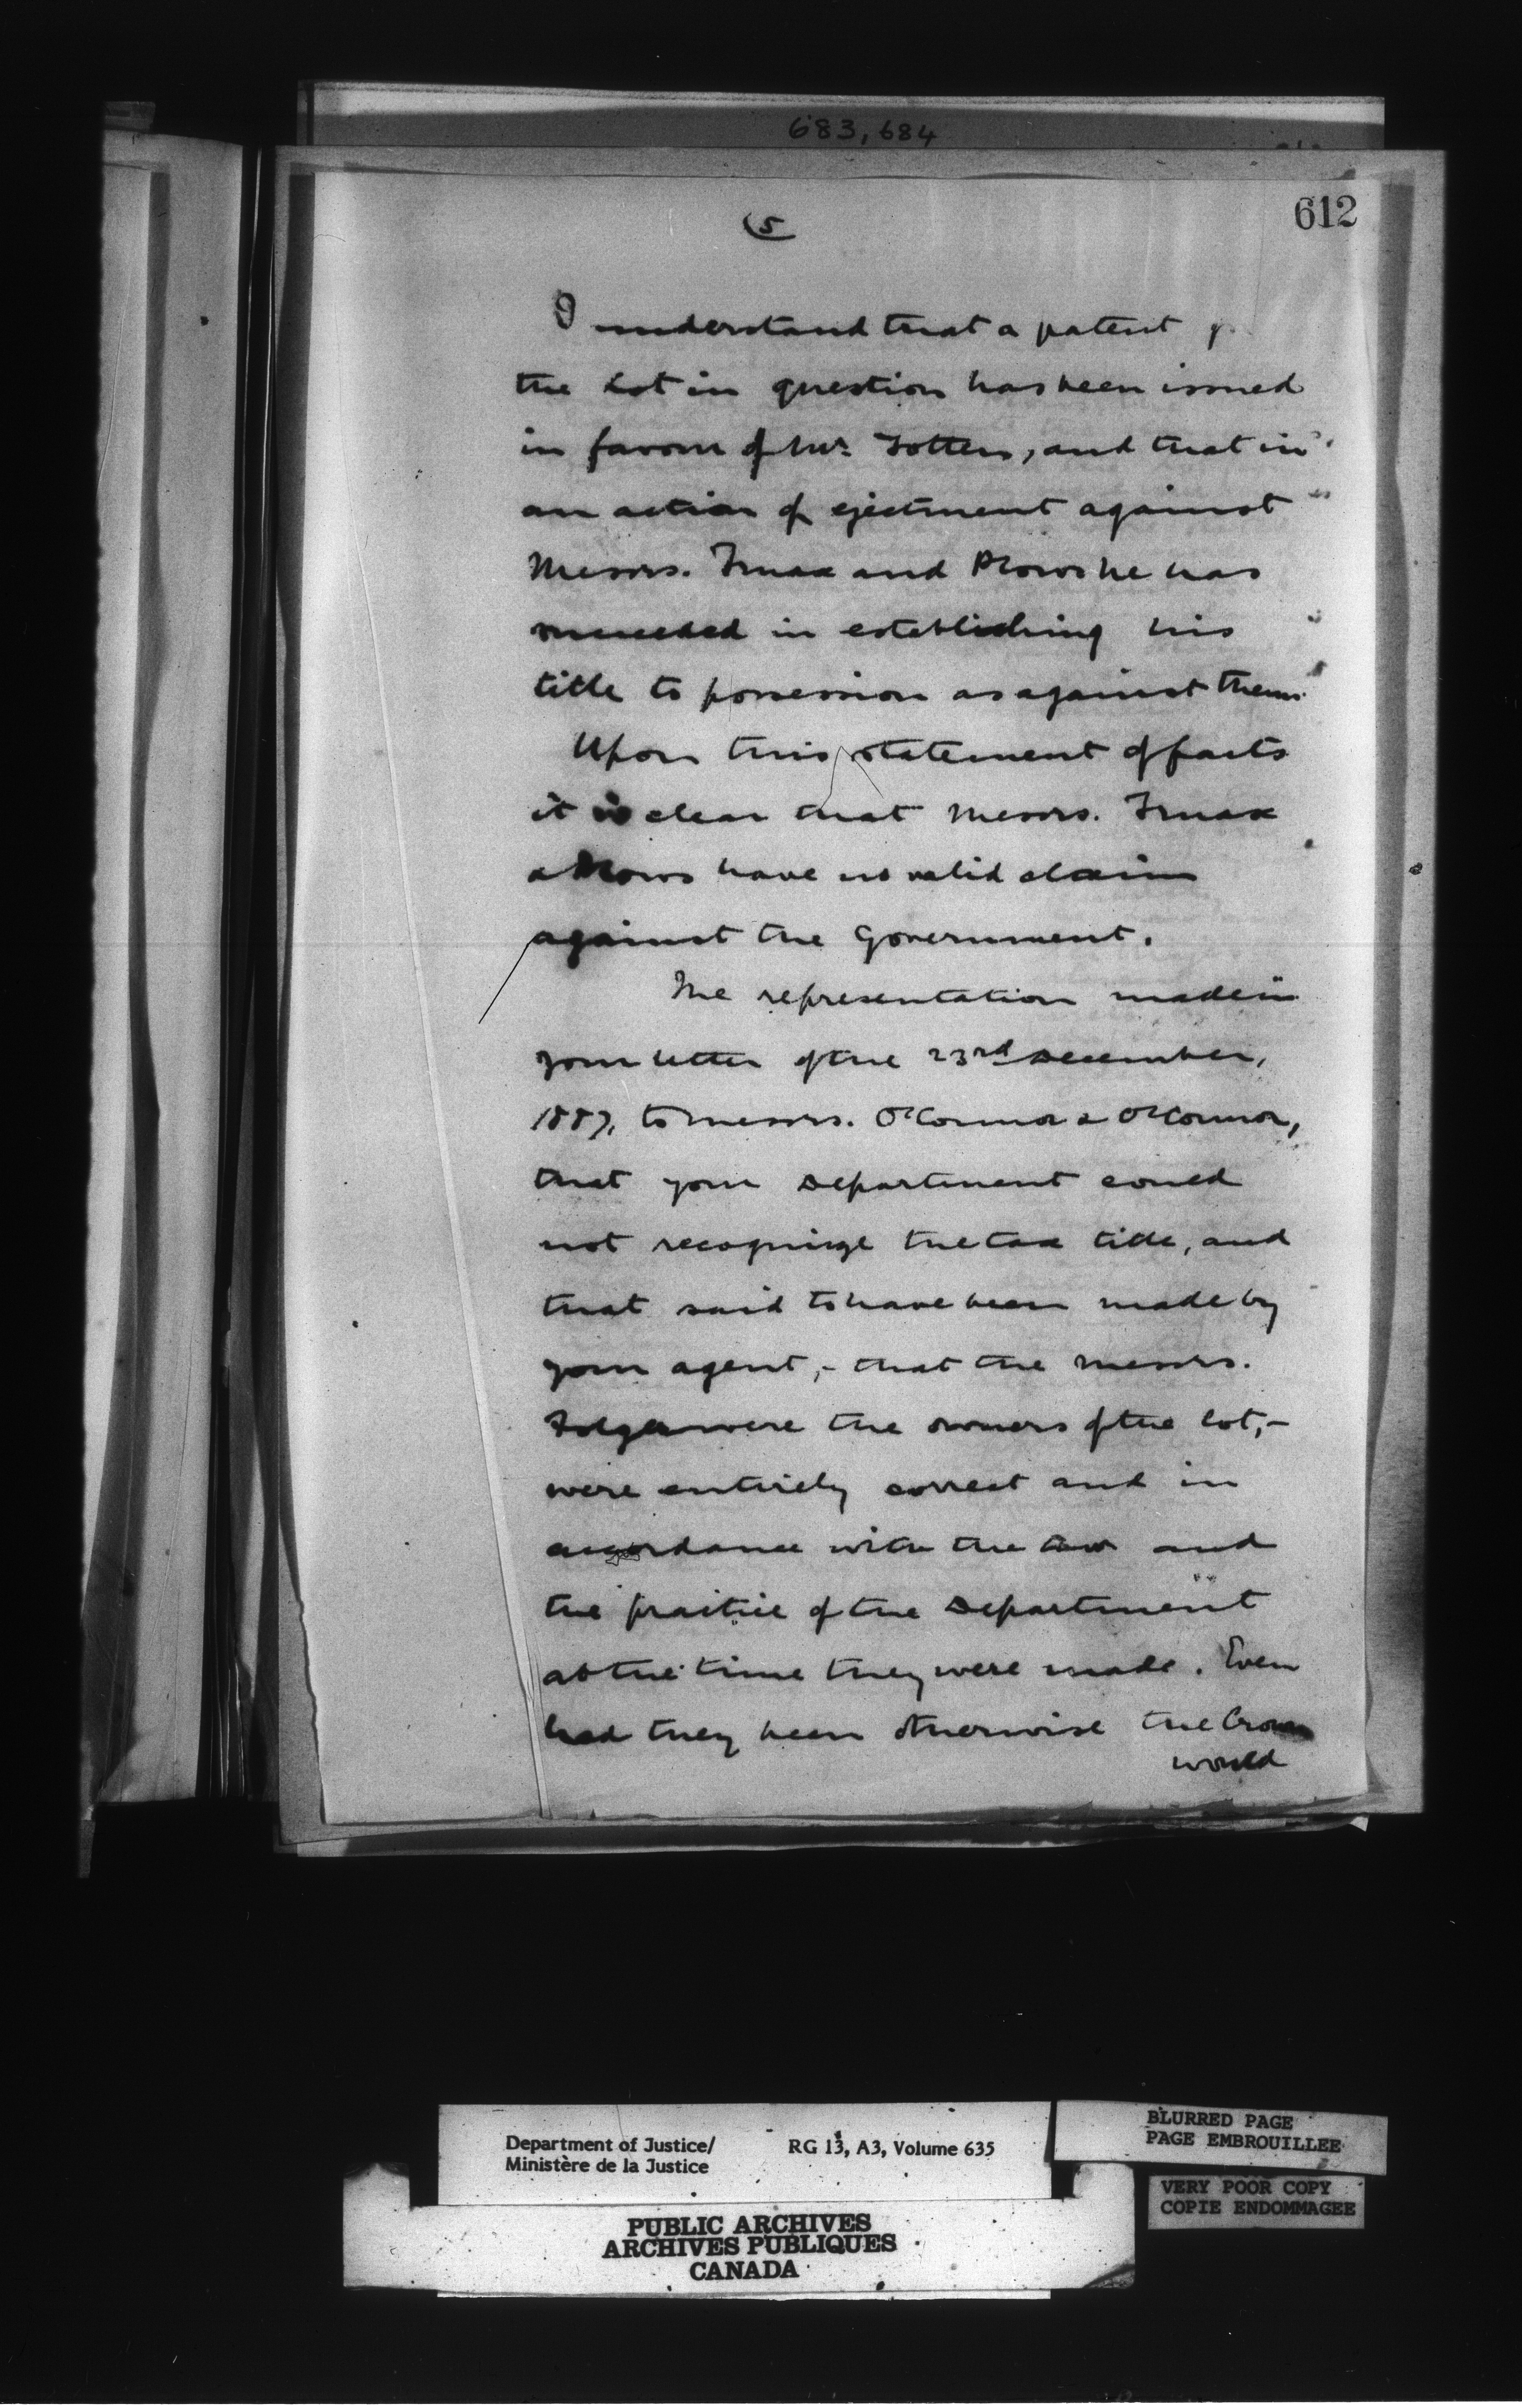 683, 684
612
(5
I understand that a patent
the Lot in question has been issued
in favour of Mr. Totten, and that in
an action of ejectment against
Messrs. Truax and Plows he has
succeeded in establishing his
title to possession as against them.
Upon this statement of facts
it is clear that Messrs. Truax
& Plows have no valid claim
against the Government.
The representation made in
your letter of the 23rd December,
1887, to Messrs. O'Connor & O'Connor,
that your Department could
not recognize the tax title, and
that said to have been made by
your agent, - that the Messrs.
Folger were the owners of the lot, -
were entirely correct and in
accordance with the law and
the practice of the Department
at the time they were made. Even
had they been otherwise the Crown
would
Department of Justice/
Ministère de la Justice
RG 13, A3, Volume 635
BLURRED PAGE
PAGE EMBROUILLEE
VERY POOR COPY
COPIE ENDOMMAGEE
PUBLIC ARCHIVES
ARCHIVES PUBLIQUES
CANADA